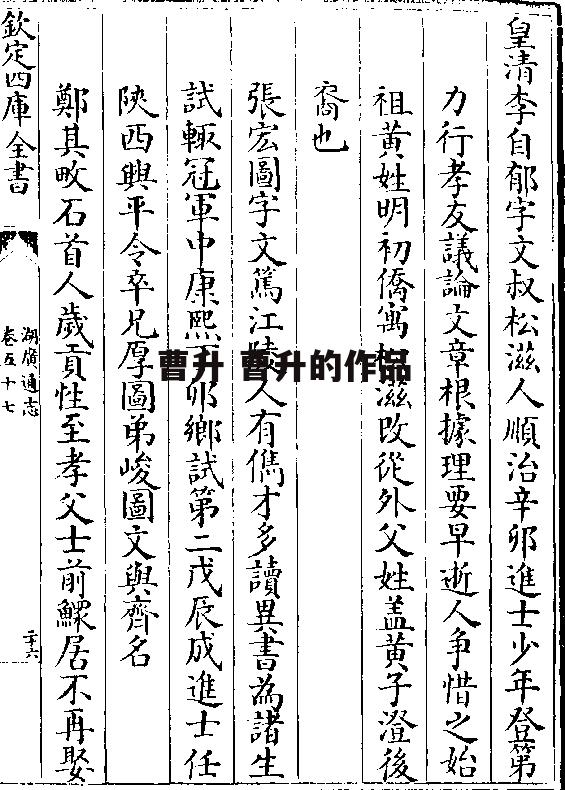 皇清李自郁字文叔松滋人順治辛卯進士少年登第
力行孝友議論文章根據理要早逝人争惜之始
祖黄姓明初僑寓松滋改從外父姓盖黄子澄後
裔也
張宏圖字文篤江陵人有儁才多讀異書為諸生
試輙冠軍中康熙卯鄉試第二戊辰成進士任
陜西興平令卒兄厚圖弟峻圖文與齊名
鄭其畋石首人歲貢性至孝父士前鰥居不再娶
欽定四庫全書
湖廣通志
卷五十七
曹升 曹升的作品